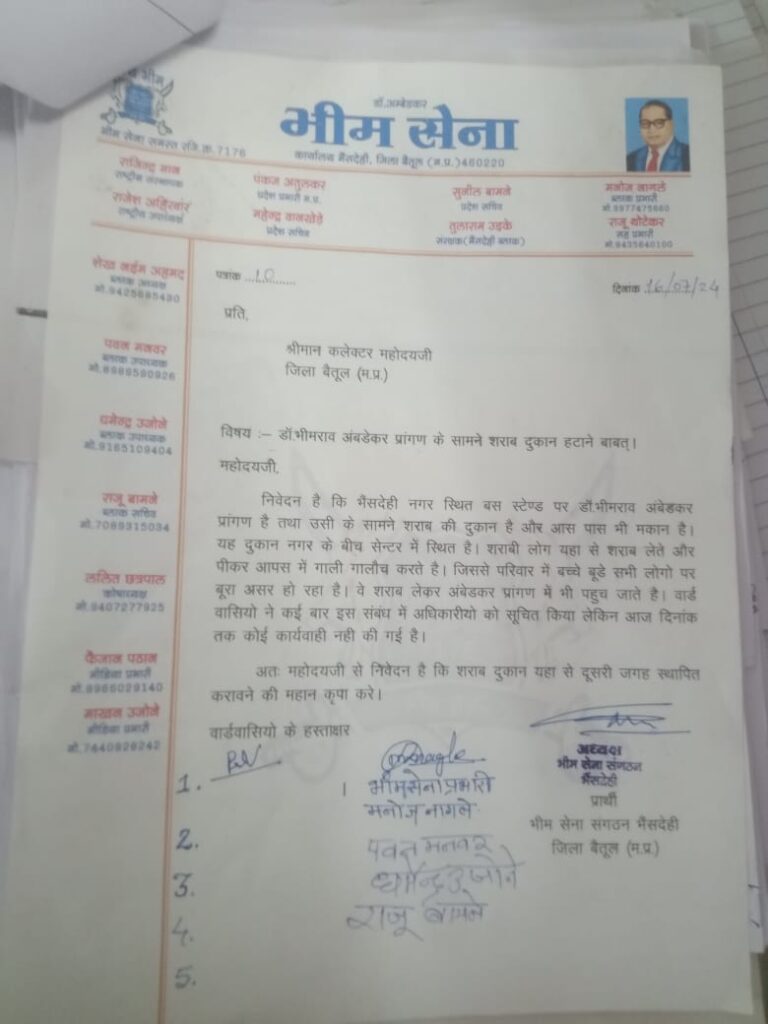 जय भीम
भीम सेना समस्त रजि.क्र.7176
डॉ.अम्बेडकर
भीम सेना
कार्यालय भैंसदेही, जिला बैतूल (म.प्र.)460220
राजिन्द्र मान
राष्ट्रीय संस्थापक
राजेश अहिरवार
राष्ट्रीय उपाध्यक्ष
पंकज अतुलकर
प्रदेश प्रभारी म.प्र.
महेन्द्र वानखेडे
प्रदेश सचिव
सुनील बामने
प्रदेश सचिव
तुलाराम उइके
संरक्षक(भैंसदेही ब्लाक)
मनोज नागले
ब्लाक प्रभारी
मो.9977475660
राजू थोटेकर
सह प्रभारी
मो.9435640100
शेख नईम अहमद
ब्लाक अध्यक्ष
मो.9425685430
पवन मनवर
ब्लाक उपाध्यक्ष
मो.8989590926
धर्मेन्द्र उजोने
ब्लाक उपाध्यक्ष
मो.9165109404
राजू बामने
ब्लाक सचिव
मो.7089315034
ललित छत्रपाल
कोषाध्यक्ष
मो.9407277925
फैजान पठान
मीडिया प्रभारी
मो.9966029140
माखन उजोने
मीडिया प्रभारी
मो.7440926242
पत्राक ...10.........
दिनाक .16/07/24
प्रति,
श्रीमान कलेक्टर महोदयजी
जिला बैतूल (म.प्र.)
विषय :– डॉ.भीमराव अंबडेकर प्रांगण के सामने शराब दुकान हटाने बाबत्।
महोदयजी,
निवेदन है कि भैंसदेही नगर स्थित बस स्टेण्ड पर डॉ.भीमराव अंबेडकर
प्रांगण है तथा उसी के सामने शराब की दुकान है और आस पास भी मकान है।
यह दुकान नगर के बीच सेन्टर में स्थित है। शराबी लोग यहा से शराब लेते और
पीकर आपस में गाली गालौच करते है। जिससे परिवार में बच्चे बूडे सभी लोगो पर
बूरा असर हो रहा है। वे शराब लेकर अंबेडकर प्रांगण में भी पहुच जाते है। वार्ड
वासियो ने कई बार इस संबंध में अधिकारीयो को सूचित किया लेकिन आज दिनांक
तक कोई कार्यवाही नही की गई है।
अतः महोदयजी से निवेदन है कि शराब दुकान यहा से दूसरी जगह स्थापित
करावने की महान कृपा करे।
वार्डवासियो के हस्ताक्षर
अध्यक्ष
भीम सेना संगठन
भैंसदेही
प्रार्थी
भीम सेना संगठन भैंसदेही
जिला बैतूल (म.प्र.)
1.
भीमसेना प्रभारी
मनोज नागले
2.
पवन मनवर
3.
धर्मेन्द्र उजोने
4.
राजू बामने
5.